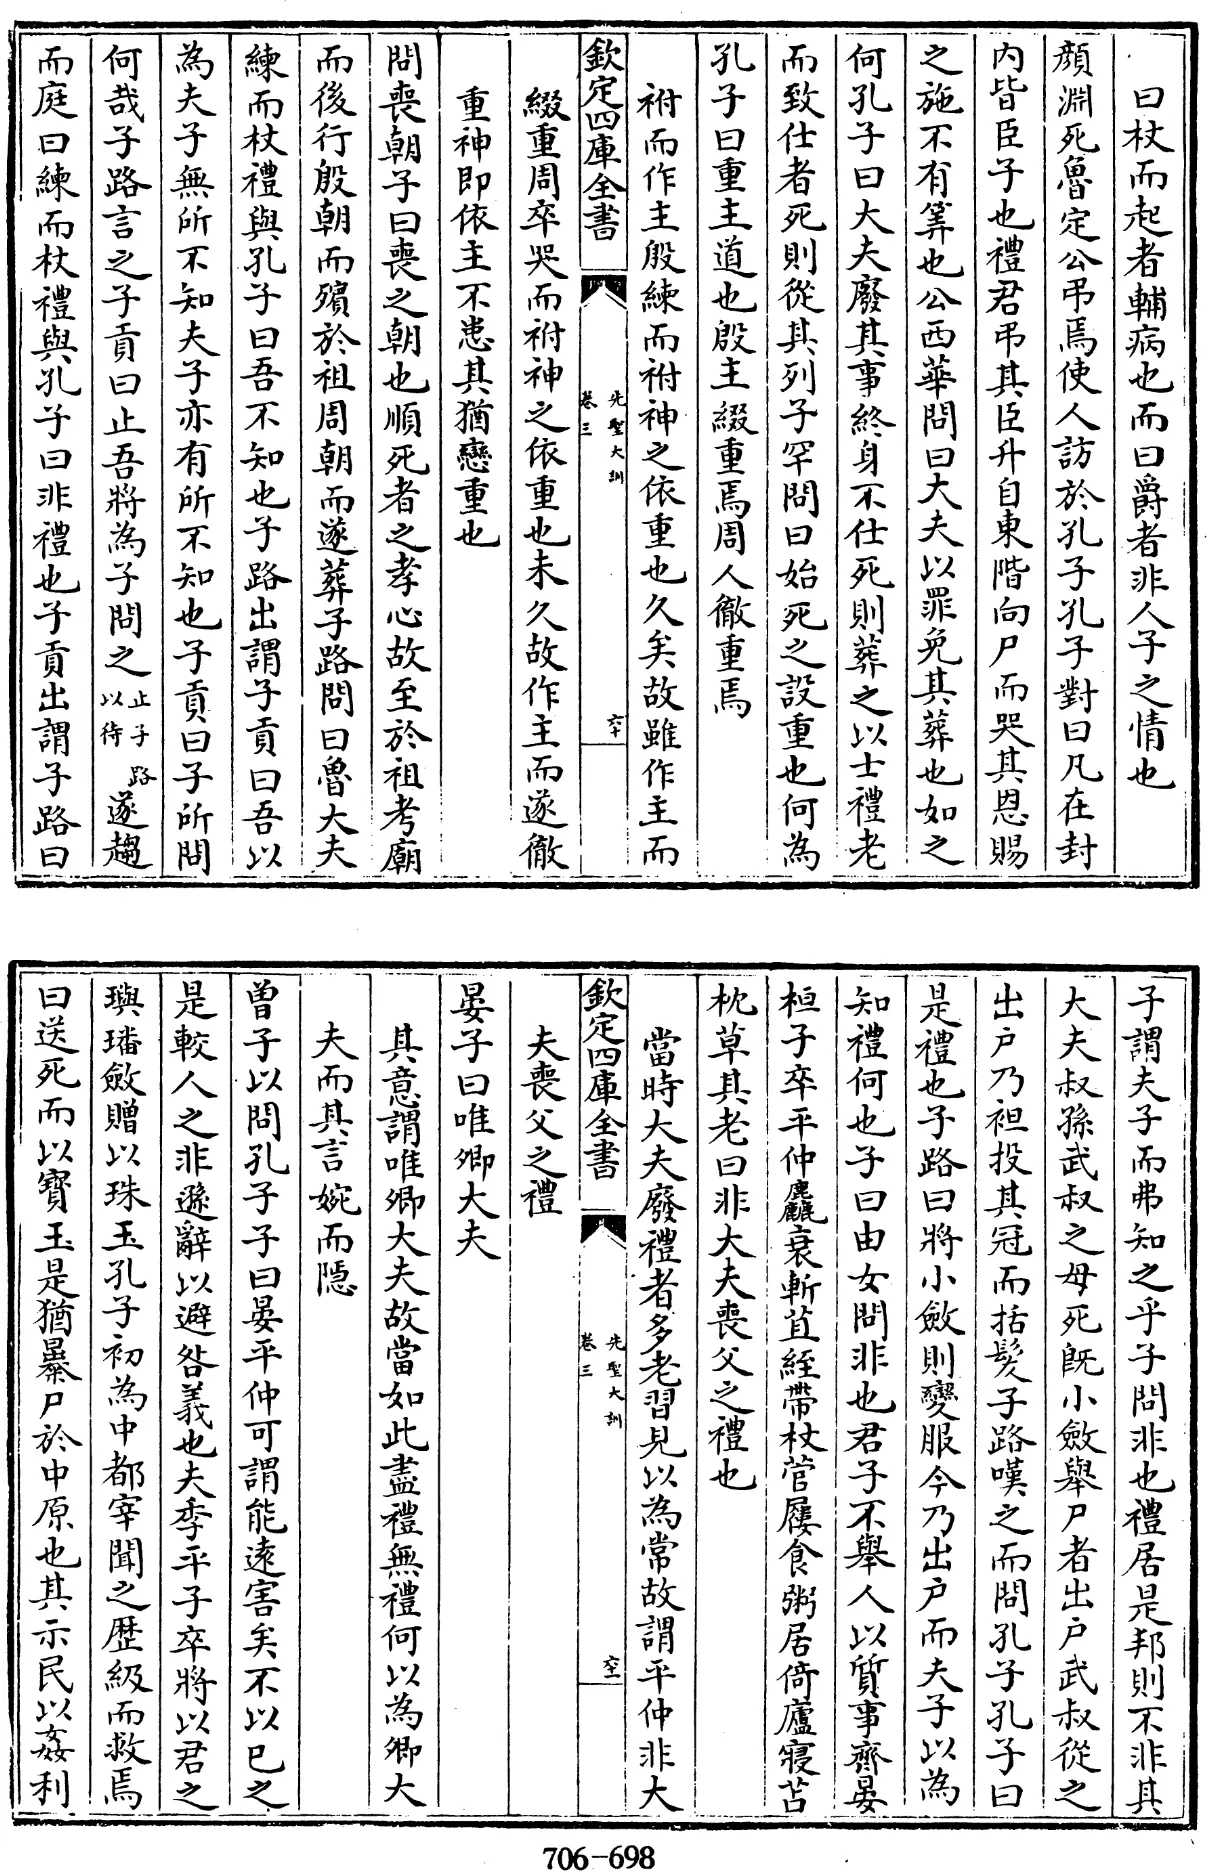 曰杖而起者輔病也而曰爵者非人子之情也
顏淵死魯定公弔焉使人訪於孔子孔子對曰凡在封
内皆臣子也禮君弔其臣升自東階向尸而哭其恩賜
之施不有筭也公西華問曰大夫以罪免其葬也如之
何孔子曰大夫廢其事終身不仕死則葬之以士禮老
而致仕者死則從其列子罕問曰始死之設重也何為
孔子曰重主道也殷主綴重焉周人徹重焉
祔而作主殷練而祔神之依重也久矣故雖作主而
欽定四庫全書
先聖大訓
卷三
六十
綴重周卒哭而祔神之依重也未久故作主而遂徹
重神即依主不患其猶戀重也
問喪朝子曰喪之朝也順死者之孝心故至於祖考廟
而後行殷朝而殯於祖周朝而遂葬子路問曰魯大夫
練而杖禮與孔子曰吾不知也子路出謂子貢曰吾以
為夫子無所不知夫子亦有所不知也子貢曰子所問
何哉子路言之子貢曰止吾將為子問之止子路以待遂趨
而庭曰練而杖禮與孔子曰非禮也子貢出謂子路曰
子謂夫子而弗知之乎子問非也禮居是邦則不非其
大夫叔孫武叔之母死旣小斂舉尸者出户武叔從之
出户乃袒投其冠而括髮子路嘆之而問孔子孔子曰
是禮也子路曰將小斂則變服今乃出户而夫子以為
知禮何也子曰由女問非也君子不舉人以質事齊晏
桓子卒平仲麤衰斬苴絰帶杖菅屨食粥居倚廬寢苫
枕草其老曰非大夫喪父之禮也
當時大夫廢禮者多老習見以為常故謂平仲非大
欽定四庫全書
先聖大訓
卷三
六十一
夫喪父之禮
晏子曰唯卿大夫
其意謂唯卿大夫故當如此盡禮無禮何以為卿大
夫而其言婉而隱
曾子以問孔子子曰晏平仲可謂能遠害矣不以已之
是較人之非遜辭以避咎義也夫季平子卒將以君之
璵璠斂贈以珠玉孔子初為中都宰聞之歴級而救焉
曰送死而以寶玉是猶暴尸於中原也其示民以姦利
706-698